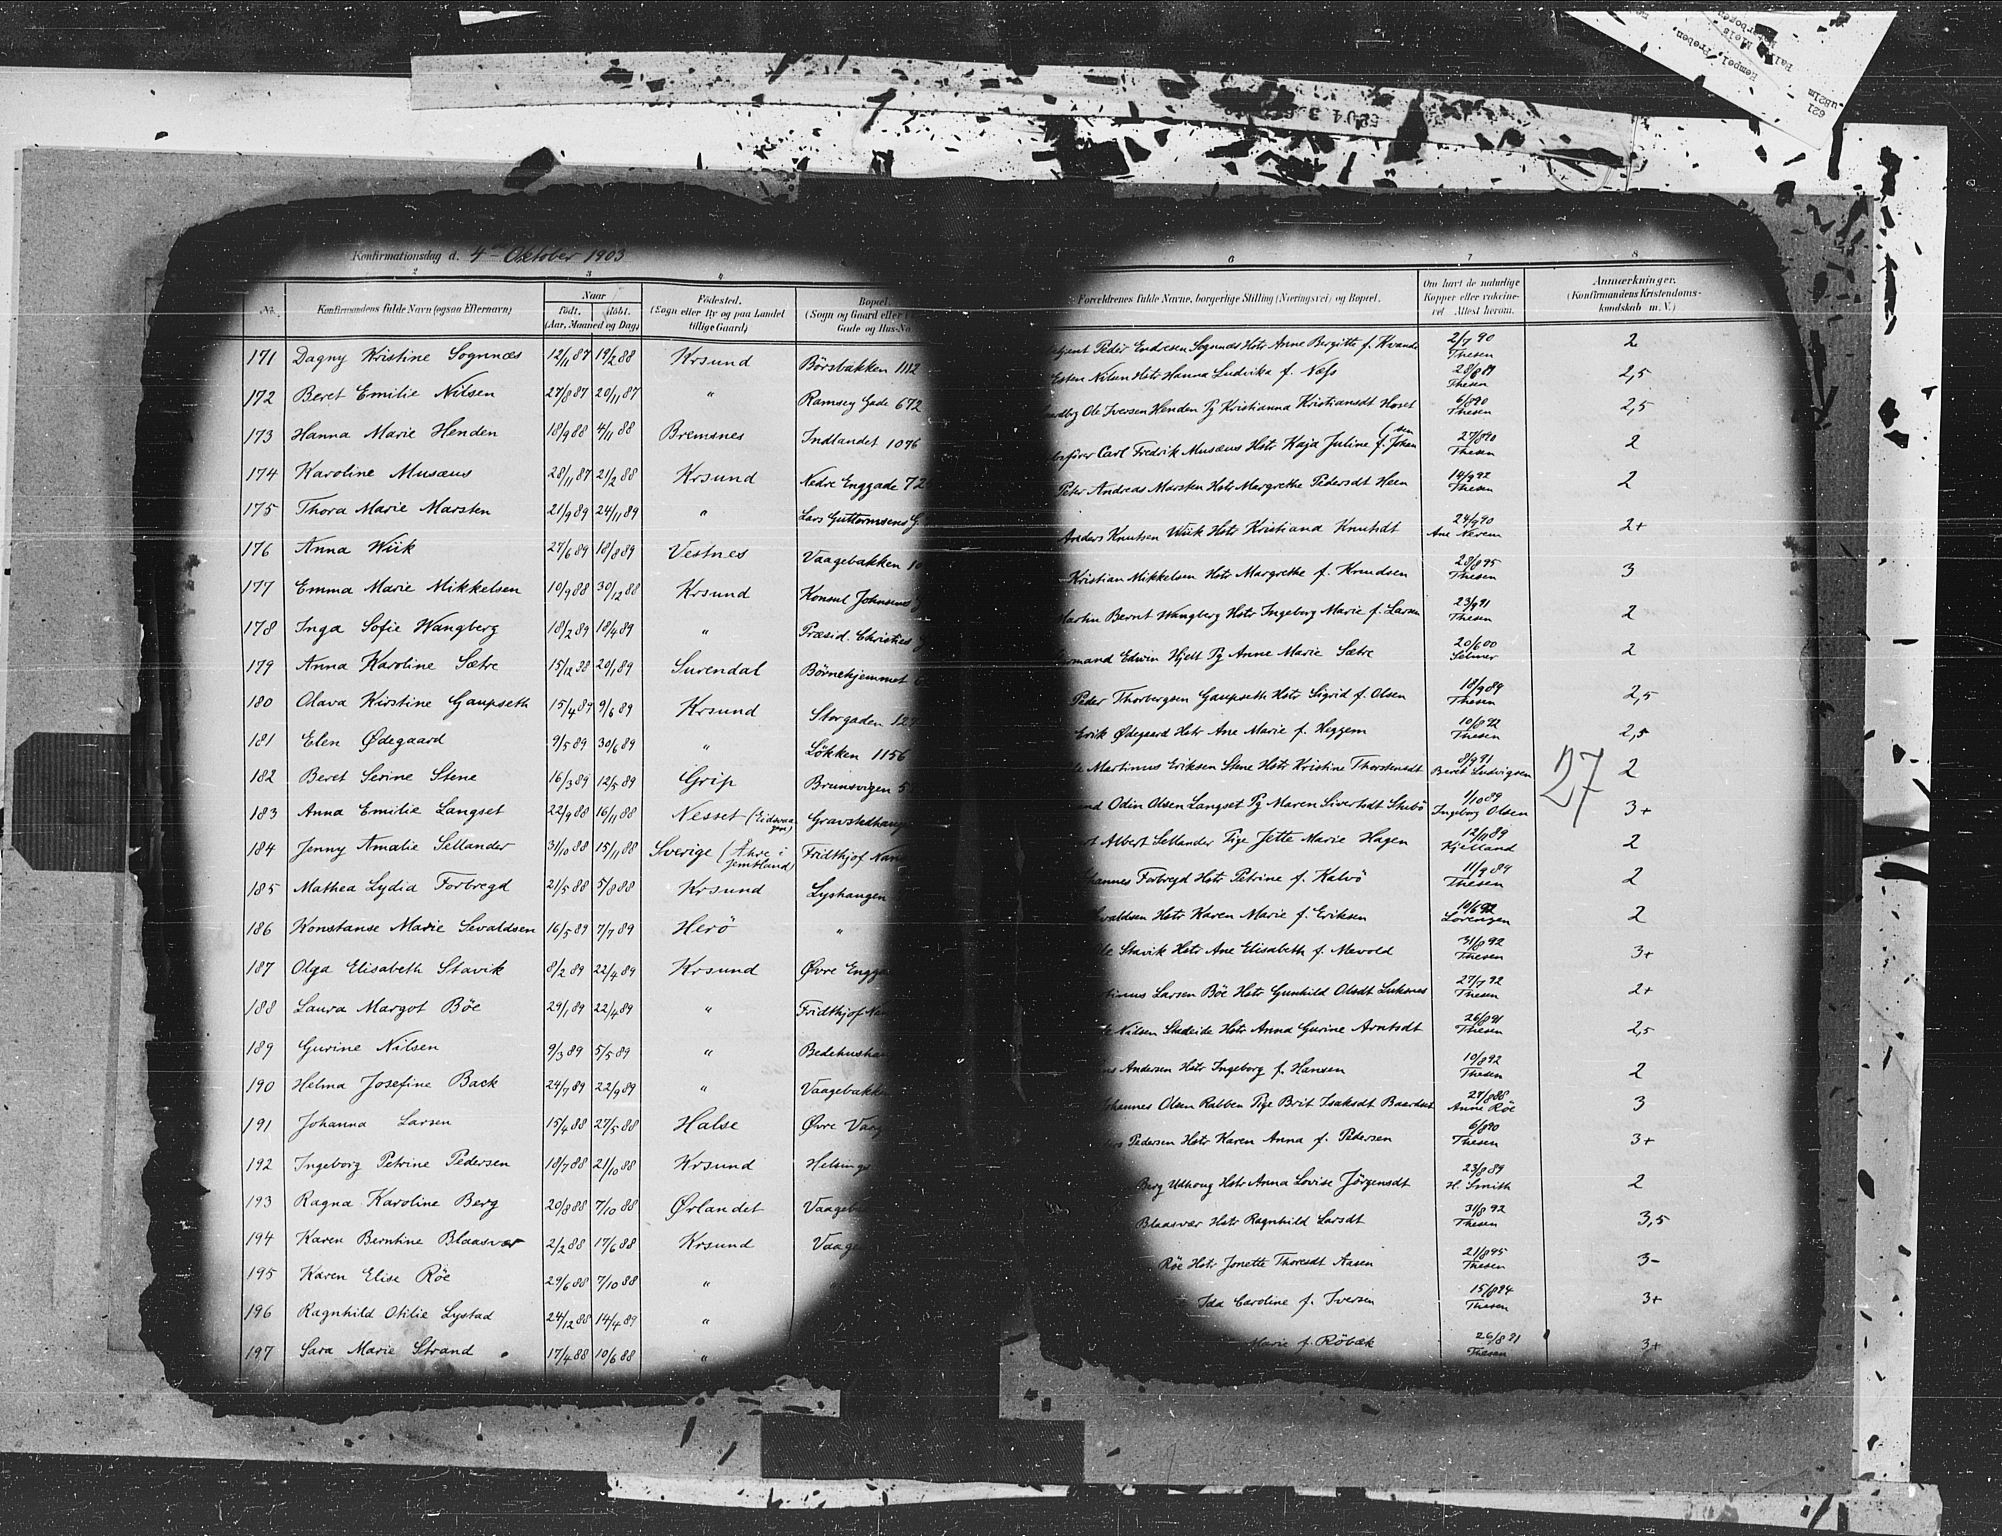 Konfirmationsdag d. 4 Oktober 1903
2 3 4
No. Konfirmandens fulde Navn (ogsaa Efternavn) Naar født. døbt. (Aar, Maaned og Dag) Fødested. (Sogn eller By og paa Landet tillige Gaard) Bopæl. (Sogn og Gaard eller Gade og Hus-No
171 Dagny Kristine Sognnæs 12/11 87 19/2 88 Krsund Børsbakken 1112
172 Beret Emilie Nilsen 27/8 87 20/11 87 " Ramsey Gade 672
173 Hanna Marie Henden 18/9 88 4/11 88 Bremsnes Indlandet 1096
174 Karoline Musæus 28/11 87 21/2 88 Krsund Nedre Enggade 72
175 Thora Marie Marsten 21/9 89 24/11 89 " Lars Guttormsens G.
176 Anna Wiik 27/6 89 18/8 89 Vestnes Vaagebakken 10
177 Emma Marie Mikkelsen 10/9 88 30/12 88 Krsund Konsul Johnsens
178 Inga Sofie Wangberg 18/2 89 18/4 89 " Præsid. Christies
179 Anna Karoline Sætre 15/12 88 20/1 89 Surendal Børnehjemmet
180 Olava Kirstine Gaupseth 15/4 89 9/6 89 Krsund Storgaden 127
181 Elen Ødegaard 9/5 89 30/6 89 " Løkken 1156
182 Beret Serine Stene 16/3 89 12/5 89 Grip Brunsvigen 5
183 Anna Emilie Langset 22/9 88 16/11 88 Nesset (Eidsvaagen) Gravsted
184 Jenny Amalie Sellander 31/10 88 15/11 88 Sverige (Åhre i Jemtland) Fridthjof Nan
185 Mathea Lydia Forbregd 21/5 88 5/8 88 Krsund Lyshaugen
186 Konstanse Marie Sevaldsen 16/5 89 7/7 89 Herö "
187 Olga Elisabeth Stavik 8/2 89 22/4 89 Krsund Øvre Engga
188 Laura Margot Böe 29/1 89 22/4 89 " Fridthjof Nan
189 Gurine Nilsen 9/3 89 5/5 89 " Bedehusbak
190 Helma Josefine Back 24/7 89 22/9 89 " Vaagebakke
191 Johanna Larsen 15/4 88 27/5 88 Halse Øvre Vaag
192 Ingeborg Petrine Pedersen 18/7 88 21/10 88 Krsund Helsings
193 Ragna Karoline Berg 20/8 88 7/10 88 Ørlandet Vaageb
194 Karen Berntine Blaasvær 2/2 88 17/6 88 Krsund Vaage
195 Karen Elise Röe 29/6 88 7/10 88 "
196 Ragnhild Otilie Lystad 24/12 88 14/4 89 "
197 Sara Marie Strand 17/4 88 10/6 88 "
6 7 8
Forældrenes fulde Navne, borgerlige Stilling (Næringsvei) og Bopæl. Om havt de naturlige Kopper eller vakcineret Attest herom. Anmærkninger. (Konfirmandens Kristendomskundskab m. V.)
Peder Endresen Sognnæs Hstr Anne Birgitte f. Kvande 2/7 90 Thesen 2
Esten Nilsen Hstr Hanna Ludvika f. Næss 28/8 89 Thesen 2,5
Ole Iversen Henden Pg Kristianna Kristiansdt Hoset 6/8 90 Thesen 2,5
Carl Fredrik Musæus Hstr Kaja Juline f. Johansen 27/8 90 Thesen 2
Peter Andreas Marsten Hstr Margrethe Pedersdt Heen 14/9 92 Thesen 2
Anders Knutsen Wiik Hstr Kristiana Knutsdt 24/9 90 Ane Nerem 2+
Kristian Mikkelsen Hstr Margrethe f. Knudsen 28/8 95 Thesen 3
Martin Bernt Wangberg Hstr Ingeborg Marie f. Larsen 23/9 91 Thesen 2
Edwin Hjelt Pg Anne Marie Sætre 20/6 00 Selmer 2
Peder Thorbergsen Gaupseth Hstr Sigrid f. Olsen 18/9 89 Thesen 2,5
Erik Ødegaard Hstr Ane Marie f. Heggem 10/8 92 Thesen 2,5
Ole Martinus Eriksen Stene Hstr Kristine Thorstensdt 8/9 91 Beret Ludvigsen 2
27
Odin Olsen Langset Pg Maren Sivertsdt Stubö 1/10 89 Ingeborg Olsen 3+
Albert Sellander Pige Jette Marie Hagen 12/11 89 Kjelland 2
Johannes Forbregd Hstr Petrine f. Kalvö 11/9 89 Thesen 2
Sevaldsen Hstr Karen Marie f. Eriksen 10/6 92 Lorenzen 2
Ole Stavik Hstr Ane Elisabeth f. Mevold 31/8 92 Thesen 3+
Larsen Böe Hstr Gunhild Olsdt Luksnes 27/7 92 Thesen 2+
Nilsen Hstr Anna Gurine Arntsdt 26/8 91 Thesen 2,5
Andersen Hstr Ingeborg f. Hansen 10/8 92 Thesen 2
Johannes Olsen Rabben Pige Brit Isaksdt Baardset 27/8 88 Anne Röe 3
Pedersen Hstr Karen Anna f. Pedersen 6/8 90 Thesen 3+
Berg Udhoug Hstr Anna Lovise Jörgensdt 23/8 89 H. Smith 2
Blaasvær Hstr Ragnhild Larsdt 31/8 92 Thesen 3,5
Röe Hstr Jonette Thoresdt Aasen 21/8 95 Thesen 3-
Ida Caroline f. Iversen 15/8 94 Thesen 3+
Marie f. Röbæk 26/8 91 Thesen 3+